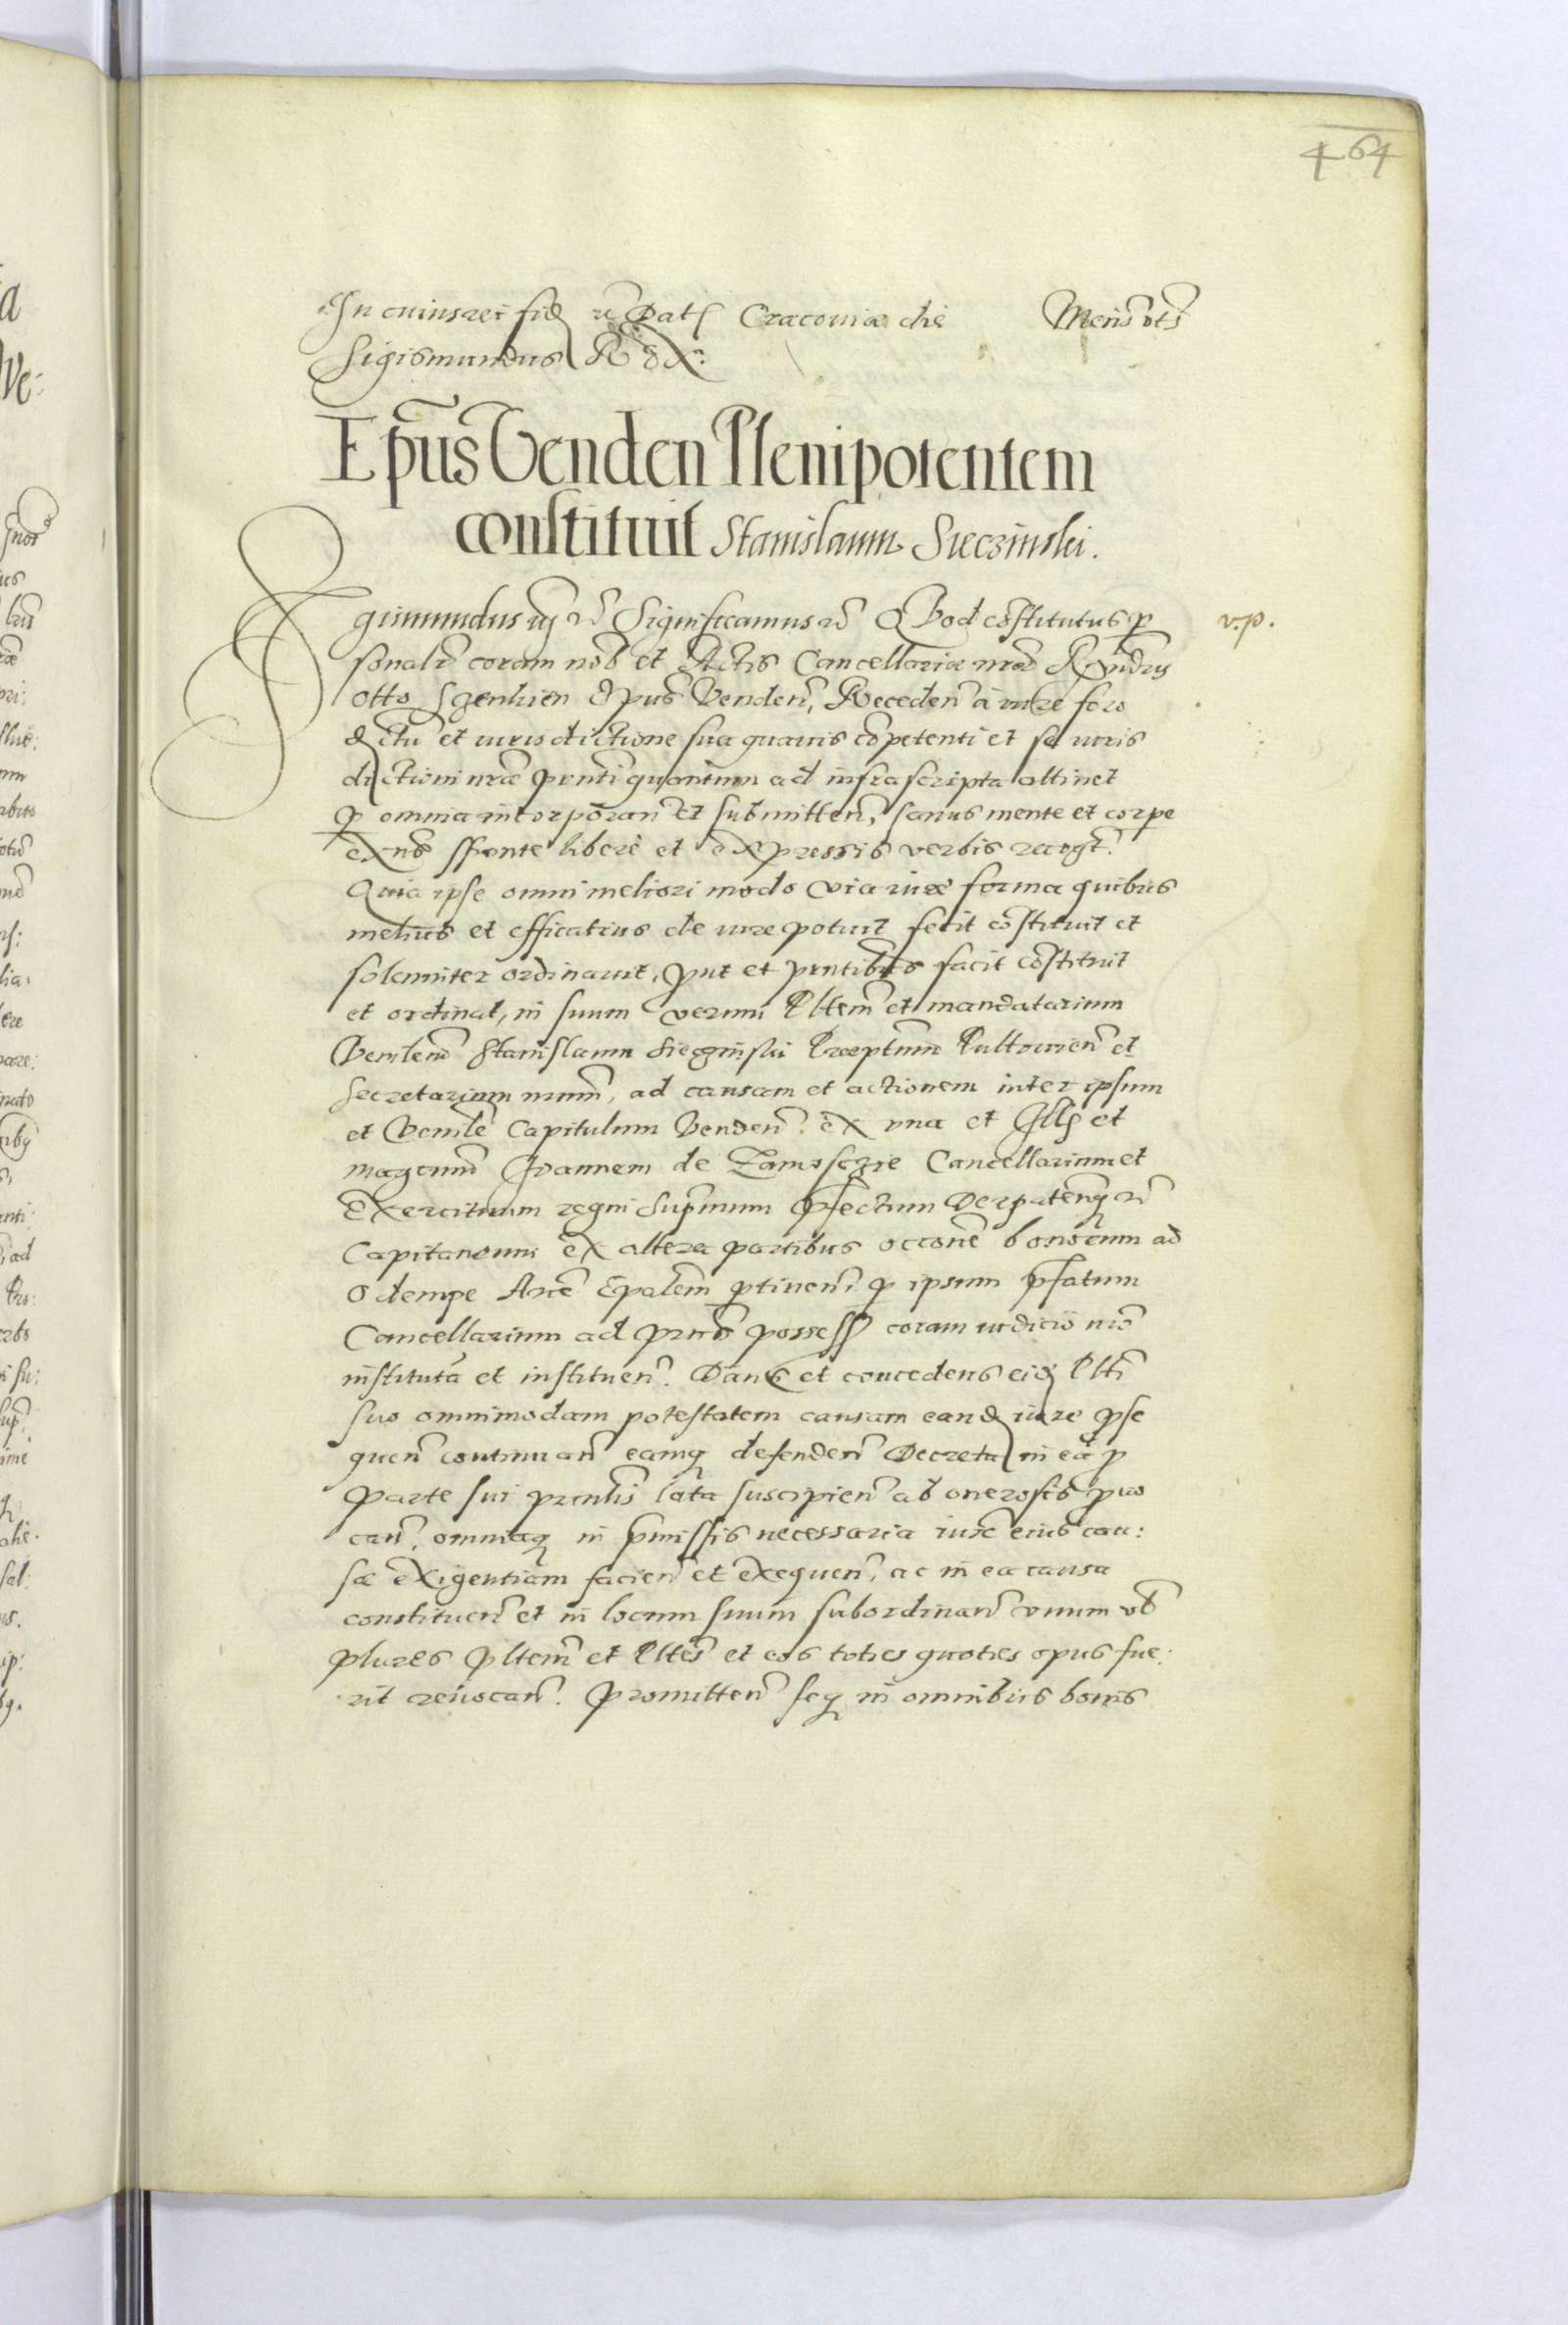 464
In cuius rei fid etc Dat Cracoviæ die Mens ots
Sigismundus Rex.
Epus Venden Plenipotentem
constituit Stanislaum Sieczinski.
Sigismundus iij etc Significamus etc Quod costitutus per
v.p.
sonalr coram nob et Actis Cancellariæ nræ Rndus
Otto Sgenkien Epus Venden, Receden à iure foro
dictu et iurisdictione sua quavis competenti et se iuris
dictioni nræ prnti quantum ad infrascripta attinet
p omnia incorporan et submitten, sanus mente et corpe
exns sponte liberè et expressis verbis recogt.
Quia ipse omni meliori modo via iure forma quibus
melius et efficatius de iure potuit fecit costituit et
solemniter ordinavit, put et prntibus facit costituit
et ordinat, in suum verum Pltem et mandatarium
Venlem Stanislaum Sieczinski Præptum Pultovien et
Secretarium nrum, ad causam et actionem inter ipsum
et Venle Capitulum Venden. ex una et Illm et
magcum Joannem de Zamoscie Cancellarium et
Exercituum regni Supmum Pfectum Derpatenq etc
Capitaneum ex altera partibus occone bonorum ad
Odempe Arce Epalem ptinen, p ipsum pfatum
Cancellarium ad prns possess coram iudicio nro
institutã et instituen. Dans et concedens eid Plti
suo omnimodam potestatem causam eand iure pse
quen continuan eamq defenden Decreta in ea p
parte sui prncplis lata suscipien ab onerosis puo
can, omniaq in pmissis necessaria iuxe eius cau:
sæ exigentiam facien et exequen, ac in ea causa
constituen et in locum suum subordinan unum vb
plures Pltem et Pltes et eos toties quoties opus fue:
rit revocan. Promitten seq in omnibus bonis